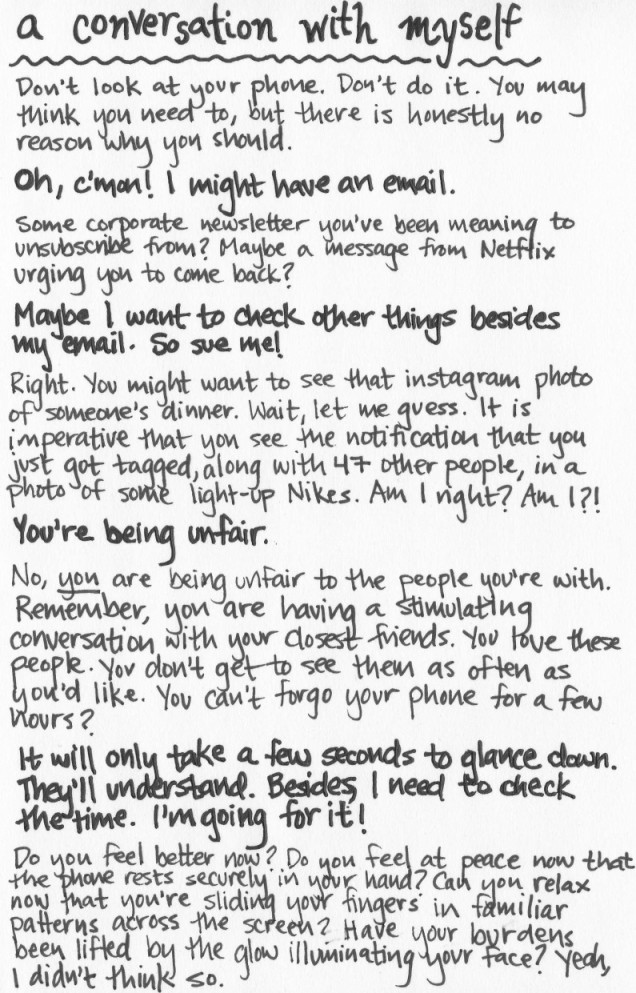 a conversation with myself
Don't look at your phone. Don't do it. You may
think you need to, but there is honestly no
reason why you should.
Oh, c'mon! I might have an email.
Some corporate newsletter you've been meaning to
unsubscribe from? Maybe a message from Netflix
urging you to come back?
Maybe I want to check other things besides
my email. So sue me!
Right. You might want to see that instagram photo
of someone's dinner. Wait, let me guess. It is
imperative that you see the notification that you
just got tagged, along with 47 other people, in a
photo of some light-up Nikes. Am I right? Am I?!
You're being unfair.
No, you are being unfair to the people you're with.
Remember, you are having a stimulating
conversation with your closest friends. You love these
people. You don't get to see them as often as
you'd like. You can't forgo your phone for a few
hours?
It will only take a few seconds to glance down.
They'll understand. Besides, I need to check
the time. I'm going for it!
Do you feel better now? Do you feel at peace now that
the phone rests securely in your hand? Can you relax
now that you're sliding your fingers in familiar
patterns across the screen? Have your burdens
been lifted by the glow illuminating your face? Yeah,
I didn't think so.